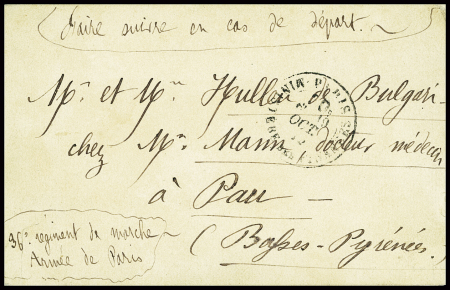 Faire suivre en cas de départ.
Mr et Mme de Bulgari
chez Mr docteur médecin
à Pau
(Basses-Pyrénées.)
36e régiment de marche
Armée de Paris
PARIS
OCT